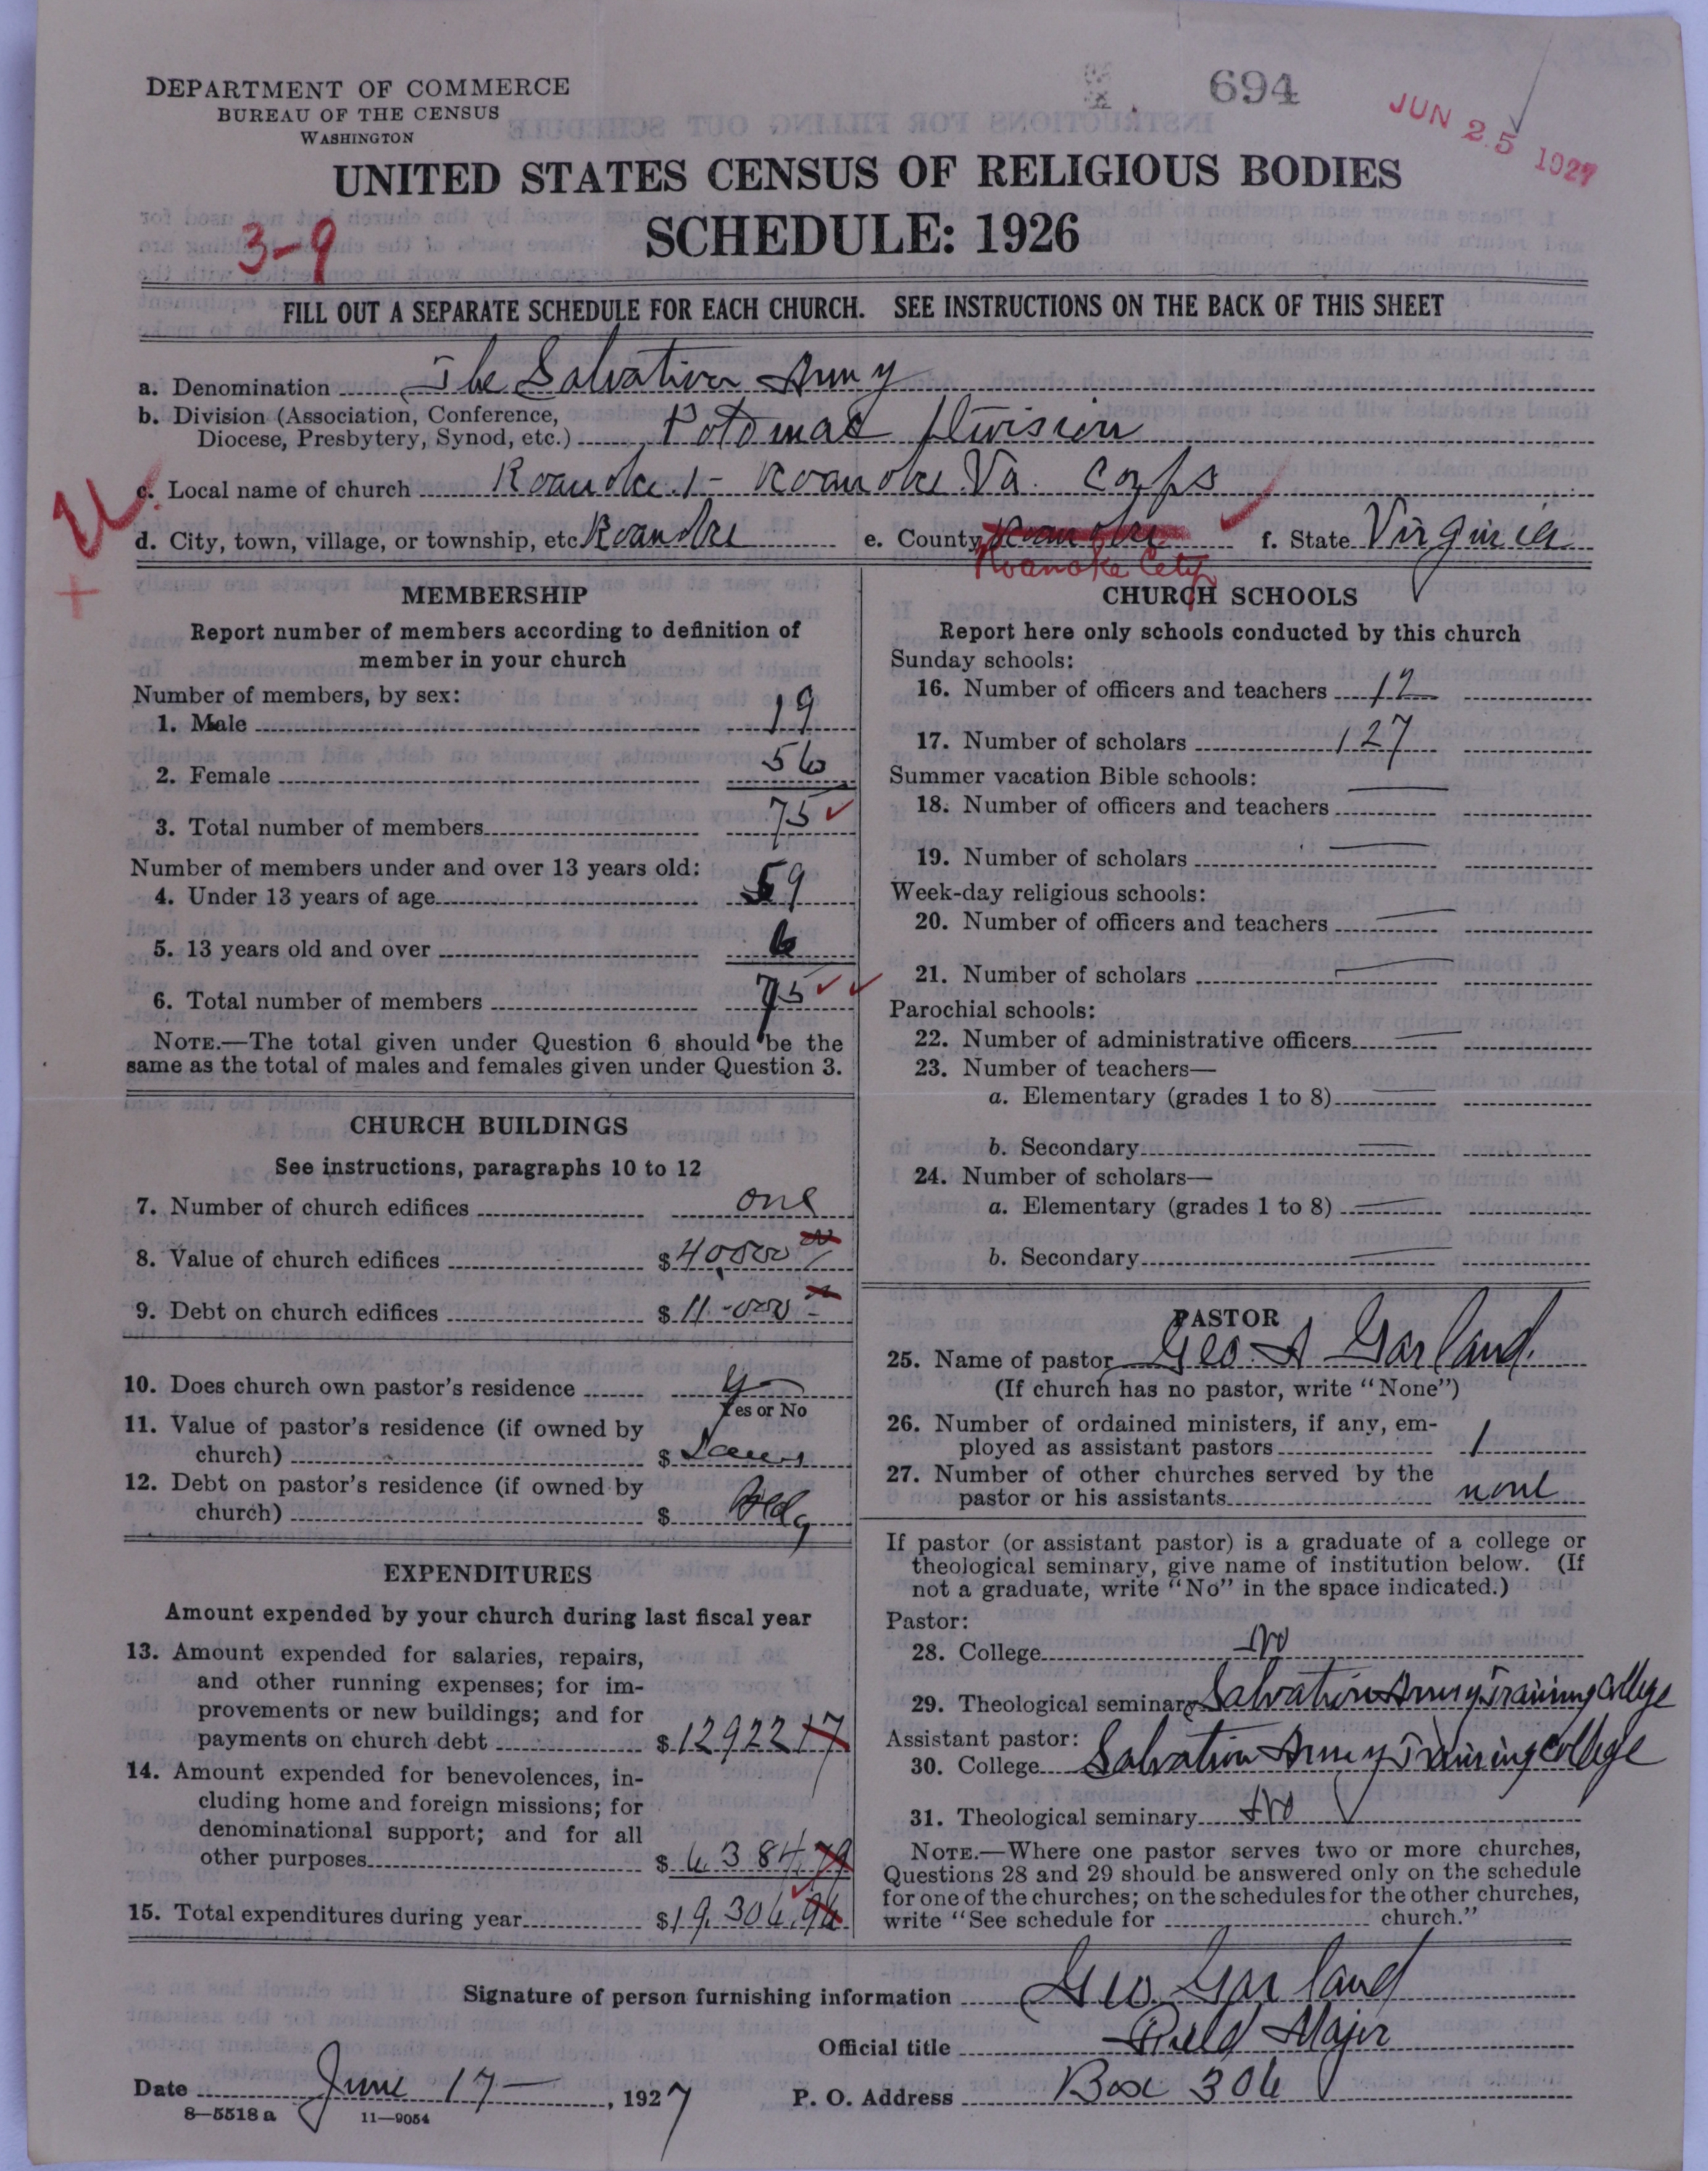 DEPARTMENT OF COMMERCE
BUREAU OF THE CENSUS
WASHINGTON
694
JUN 25 1927
UNITED STATES CENSUS OF RELIGIOUS BODIES
SCHEDULE: 1926
3-9
FILL OUT A SEPARATE SCHEDULE FOR EACH CHURCH. SEE INSTRUCTIONS ON THE BACK OF THIS SHEET
a. Denomination The Salvation Army
b. Division (Association, Conference,
Diocese, Presbytery, Synod, etc.) Potomac Division
c. Local name of church Roanoke 1 - Roanoke Va. Corps
d. City, town, village, or township, etc. Roanoke e. County Roanoke f. State Virginia
Roanoke City
MEMBERSHIP
Report number of members according to definition of
member in your church
Number of members, by sex:
1. Male 19
2. Female 56
3. Total number of members 75
Number of members under and over 13 years old:
4. Under 13 years of age 69
5. 13 years old and over 6
6. Total number of members 75
NOTE.—The total given under Question 6 should be the
same as the total of males and females given under Question 3.
CHURCH BUILDINGS
See instructions, paragraphs 10 to 12
7. Number of church edifices one
8. Value of church edifices $ 40,000
9. Debt on church edifices $ 11-000
10. Does church own pastor's residence
Yes or No
11. Value of pastor's residence (if owned by
church) $ Same
12. Debt on pastor's residence (if owned by
church) $ Bldg
EXPENDITURES
Amount expended by your church during last fiscal year
13. Amount expended for salaries, repairs,
and other running expenses; for im-
provements or new buildings; and for
payments on church debt $ 12922 17
14. Amount expended for benevolences, in-
cluding home and foreign missions; for
denominational support; and for all
other purposes $ 6384.79
15. Total expenditures during year $ 19,306.96
CHURCH SCHOOLS
Report here only schools conducted by this church
Sunday schools:
16. Number of officers and teachers 12
17. Number of scholars 127
Summer vacation Bible schools:
18. Number of officers and teachers —
19. Number of scholars —
Week-day religious schools:
20. Number of officers and teachers —
21. Number of scholars —
Parochial schools:
22. Number of administrative officers —
23. Number of teachers—
a. Elementary (grades 1 to 8) —
b. Secondary —
24. Number of scholars—
a. Elementary (grades 1 to 8) —
b. Secondary —
PASTOR
25. Name of pastor Geo. A Garland.
(If church has no pastor, write "None")
26. Number of ordained ministers, if any, em-
ployed as assistant pastors 1
27. Number of other churches served by the
pastor or his assistants none
If pastor (or assistant pastor) is a graduate of a college or
theological seminary, give name of institution below. (If
not a graduate, write "No" in the space indicated.)
Pastor:
28. College No
29. Theological seminary Salvation Army Training College
Assistant pastor:
30. College Salvation Army Training College
31. Theological seminary No
NOTE.—Where one pastor serves two or more churches,
Questions 28 and 29 should be answered only on the schedule
for one of the churches; on the schedules for the other churches,
write "See schedule for church."
Signature of person furnishing information Geo. Garland
Official title Field Major
Date June 17 — , 1927 P. O. Address Box 306
8—5518 a 11—9054